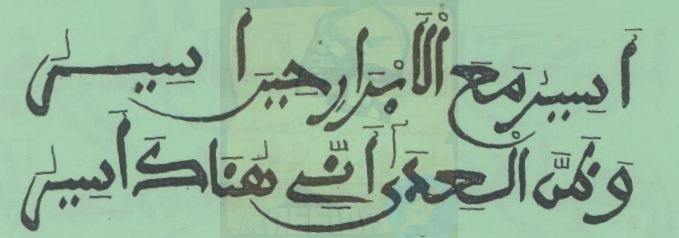 أَسِيرُ مَعَ الْأَبْرَارِ حِينَ أَسِيرُ
وَظَنَّ الْعِدَى أَنِّي هُنَاكَ أَسِيرُ